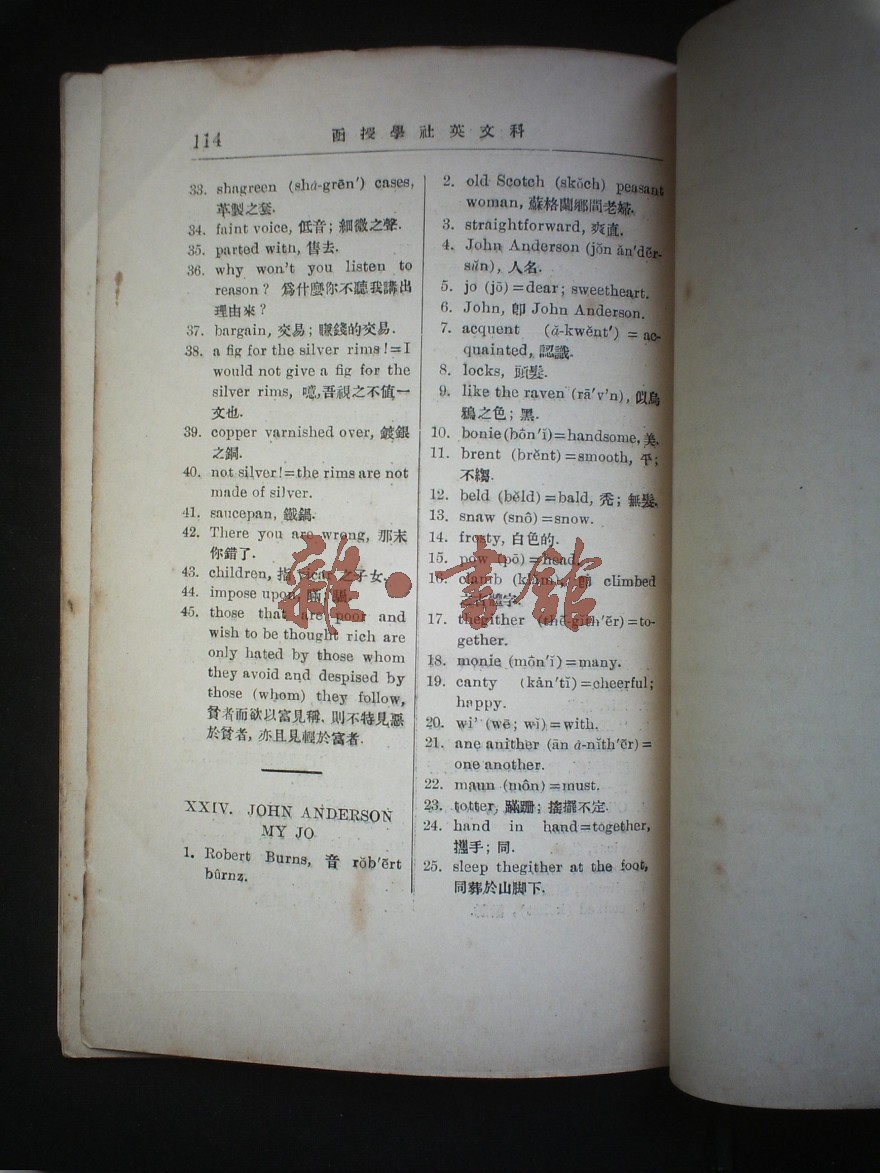 114
函授學社英文科
33. shagreen (shȧ-grēn′) cases,
革製之套.
34. faint voice, 低音; 細微之聲.
35. parted with, 售去.
36. why won't you listen to
reason? 爲什麼你不聽我講出
理由來?
37. bargain, 交易; 賺錢的交易.
38. a fig for the silver rims!=I
would not give a fig for the
silver rims, 噫,吾視之不値一
文也.
39. copper varnished over, 鍍銀
之銅.
40. not silver!=the rims are not
made of silver.
41. saucepan, 鐵鍋.
42. There you are wrong, 那末
你錯了.
43. children, 指 vicar 之子女.
44. impose upon,
45. those that are poor and
wish to be thought rich are
only hated by those whom
they avoid and despised by
those (whom) they follow,
貧者而欲以富見稱, 則不特見惡
於貧者, 亦且見輕於富者.
XXIV. JOHN ANDERSON
MY JO
1. Robert Burns, 音 rŏb′ẽrt
bûrnz.
2. old Scotch (skŏch) peasant
woman, 蘇格蘭鄉間老婦.
3. straightforward, 爽直.
4. John Anderson (jŏn ăn′dẽr-
sŭn), 人名.
5. jo (jō)=dear; sweetheart.
6. John, 卽 John Anderson.
7. acquent (ă-kwĕnt′) = ac-
quainted, 認識.
8. locks, 頭髮.
9. like the raven (rā′v'n), 似烏
鴉之色; 黑.
10. bonie (bôn′ĭ)=handsome, 美.
11. brent (brĕnt)=smooth, 平;
不縐.
12. beld (bĕld)=bald, 禿; 無髮.
13. snaw (snô)=snow.
14. frosty, 白色的.
15. pow (pō)=head.
16. clamb (klăm), 卽 climbed
之古體字.
17. thegither (thē-gĭth′ẽr)=to-
gether.
18. monie (môn′ĭ)=many.
19. canty (kân′tĭ)=cheerful;
happy.
20. wi' (wē; wĭ)=with.
21. ane anither (ān ȧ-nĭth′ẽr)=
one another.
22. maun (môn)=must.
23. totter, 蹣跚; 搖擺不定.
24. hand in hand=together,
攜手; 同.
25. sleep thegither at the foot,
同葬於山脚下.
雜·書館